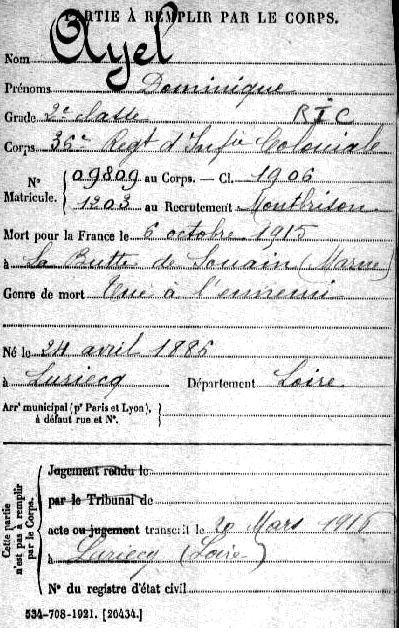 PARTIE À REMPLIR PAR LE CORPS.
Nom Ayel
Prénoms Dominique
Grade 2e classe R I C
Corps 36e Regt d'Infie Coloniale
Nº Matricule. { 09809 au Corps. — Cl. 1906
1203 au Recrutement Montbrison
Mort pour la France le 6 octobre 1915
à La Butte de Souain (Marne)
Genre de mort Tué à l'ennemi
Né le 24 avril 1886
à Luriecq Département Loire
Arrt municipal (pr Paris et Lyon),
à défaut rue et Nº.
Cette partie n'est pas à remplir par le Corps.
Jugement rendu le
par le Tribunal de
acte ou jugement transcrit le 20 Mars 1916
à Luriecq (Loire)
Nº du registre d'état civil
534-708-1921. [26434.]